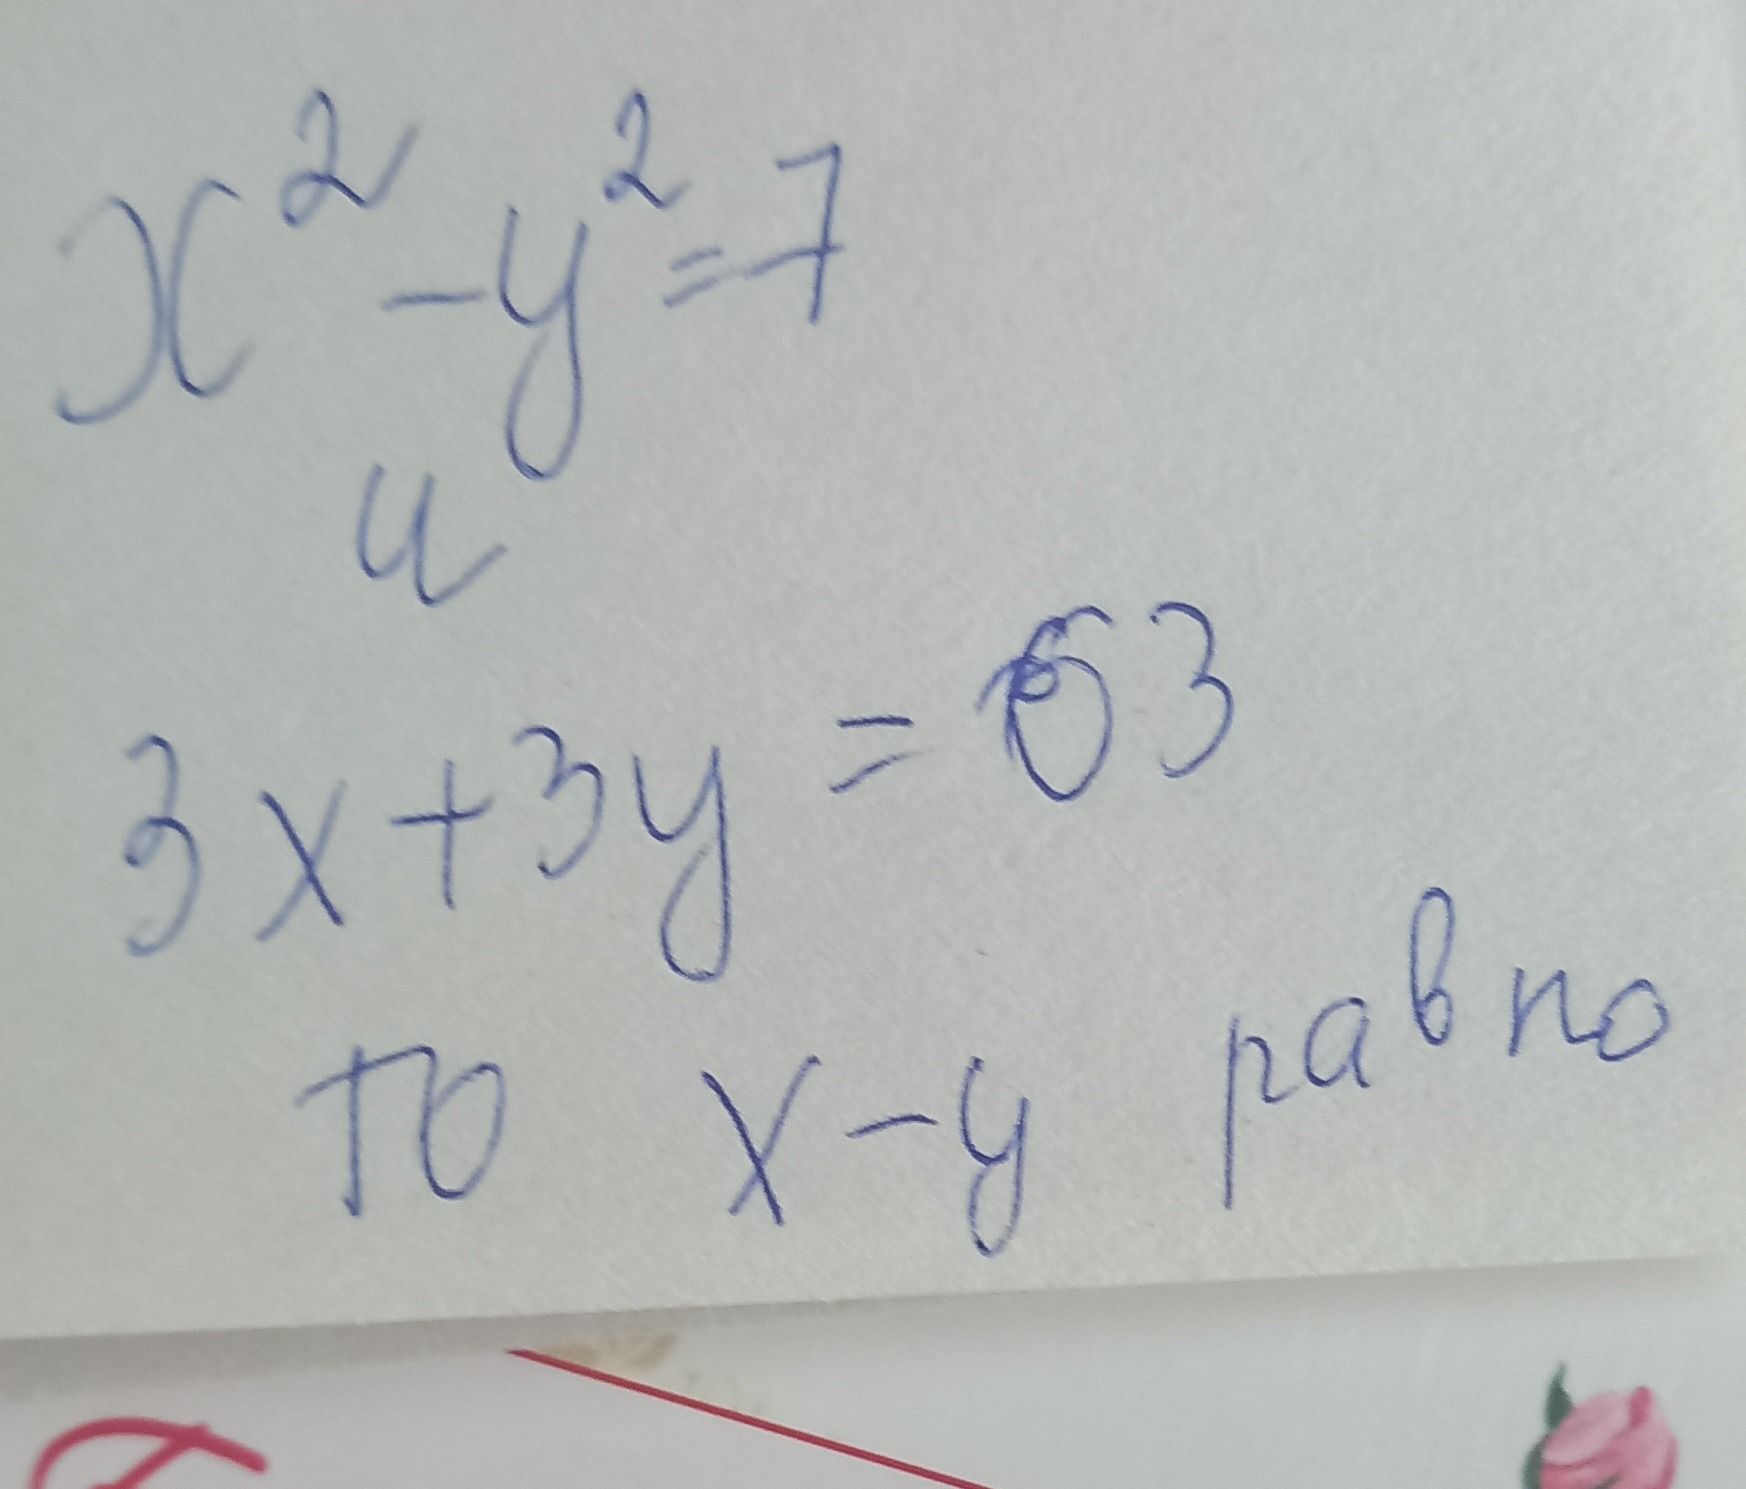 x² - y² = 7
и
3x + 3y = 63
то x - y равно